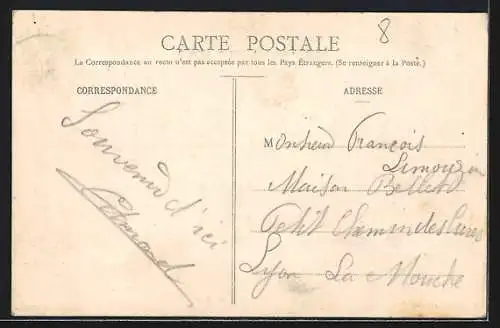 8
CARTE POSTALE
La Correspondance au recto n'est pas acceptée par tous les Pays Étrangers. (Se renseigner à la Poste.)
CORRESPONDANCE
Souvenir d'ici
ADRESSE
Monsieur François
Limouzin
Maison
Petit Chemin des
Lyon La Mouche